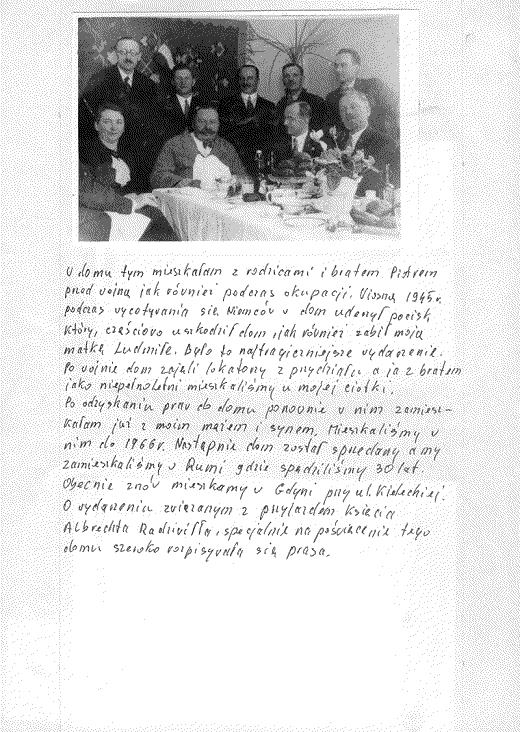 W domu tym mieszkałam z rodzicami i bratem Piotrem
przed wojną jak również podczas okupacji. Wiosną 1945r.
podczas wycofywania się Niemców w dom uderzył pocisk
który, częściowo uszkodził dom, jak również zabił moją
matkę Ludmiłę. Było to najtragiczniejsze wydarzenie.
Po wojnie dom zajęli lokatorzy z przydziału a ja z bratem
jako niepełnoletni mieszkaliśmy u mojej ciotki.
Po odzyskaniu praw do domu ponownie w nim zamiesz-
kałam już z moim mężem i synem. Mieszkaliśmy w
nim do 1966r. Następnie dom został sprzedany a my
zamieszkaliśmy w Rumi gdzie spędziliśmy 30 lat.
Obecnie znów mieszkamy w Gdyni przy ul. Kieleckiej.
O wydarzeniu związanym z przyjazdem Księcia
Albrechta Radziwiłła, specjalnie na poświęcenie tego
domu szeroko rozpisywała się prasa.